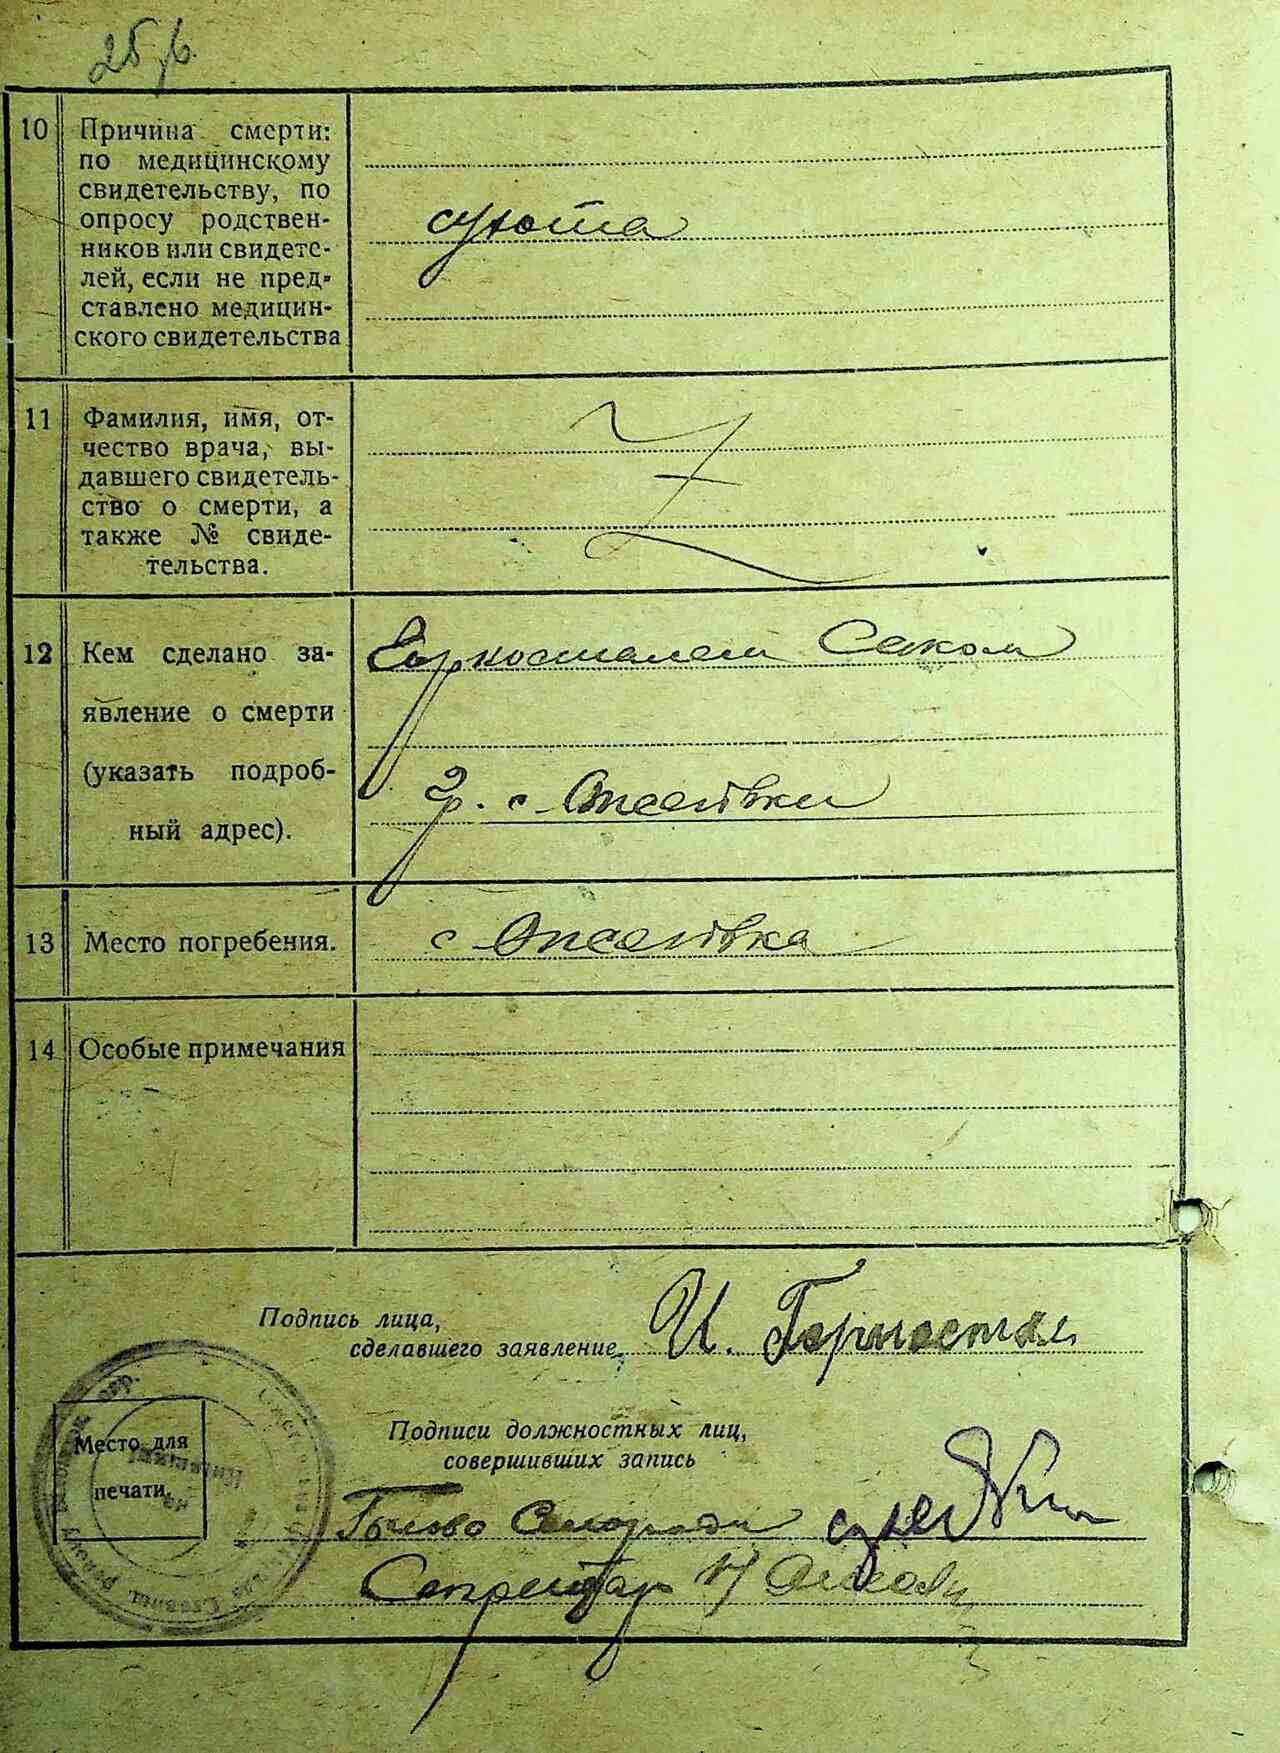 10 Причина смерти:
по медицинскому
свидетельству, по
опросу родствен-
ников или свидете-
лей, если не пред-
ставлено медицин-
ского свидетельства
сухота
11 Фамилия, имя, от-
чество врача, вы-
давшего свидетель-
ство о смерти, а
также № свиде-
тельства.
12 Кем сделано за-
явление о смерти
(указать подроб-
ный адрес).
гр. с
13 Место погребения.
с
14 Особые примечания
Подпись лица,
сделавшего заявление. И. Горностал
Подписи должностных лиц,
совершивших запись
Место для
печати.
Голова
Секретар